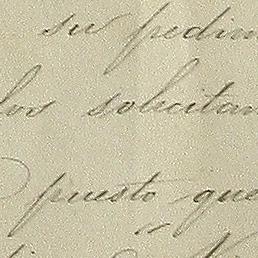 su pedim
los solicitan
puesto que